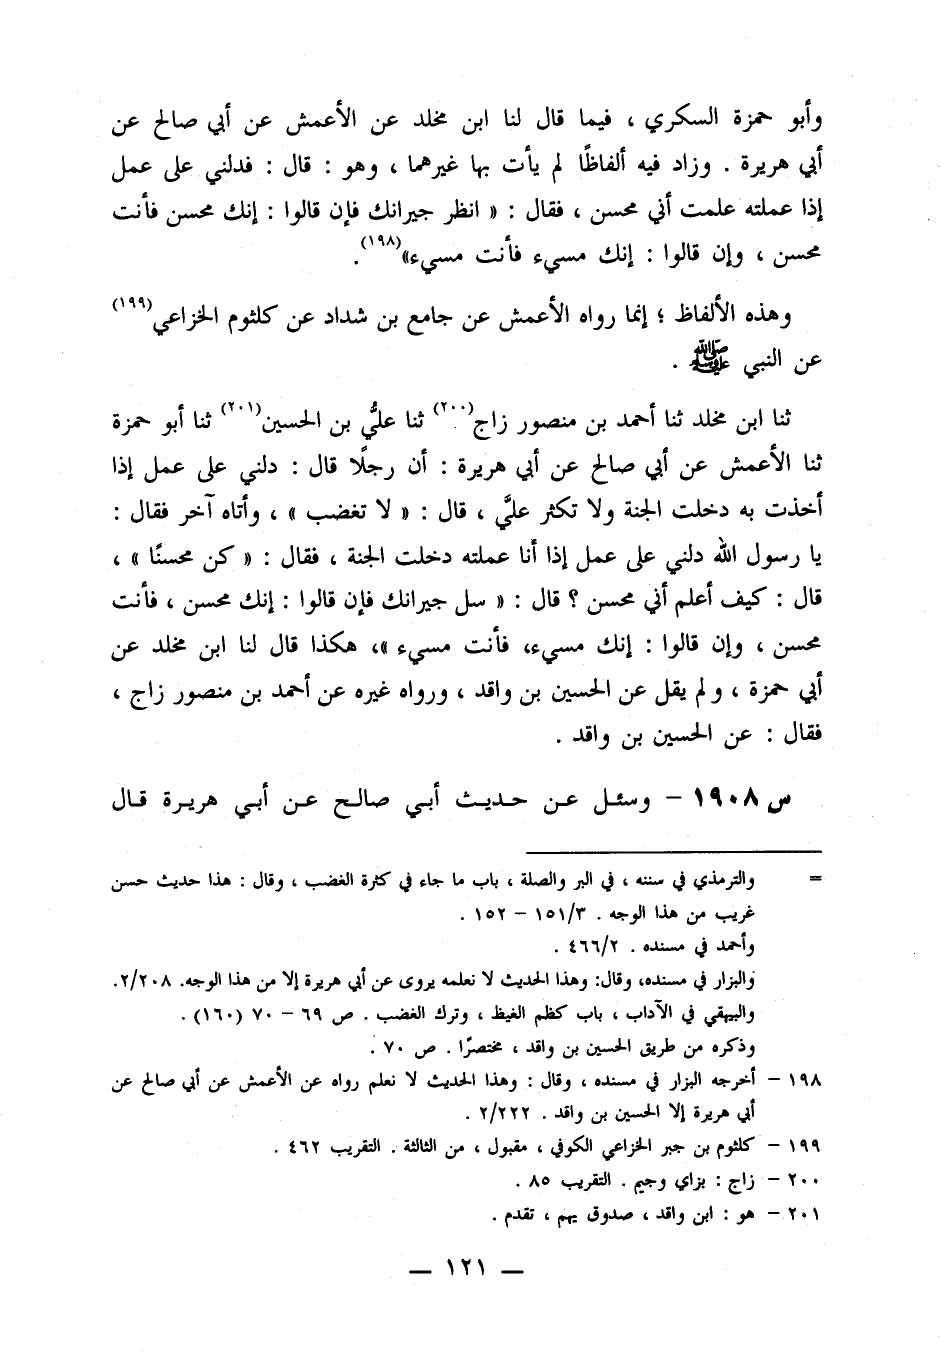 وأبو حمزة السكري ، فيما قال لنا ابن مخلد عن الأعمش عن أبي صالح عن
أبي هريرة . وزاد فيه ألفاظًا لم يأت بها غيرهما ، وهو : قال : فدلني على عمل
إذا عملته علمت أني محسن ، فقال : « انظر جيرانك فإن قالوا : إنك محسن فأنت
محسن ، وإن قالوا : إنك مسيء فأنت مسيء»(١٩٨).
وهذه الألفاظ ؛ إنما رواه الأعمش عن جامع بن شداد عن كلثوم الخزاعي(١٩٩)
عن النبي ﷺ .
ثنا ابن مخلد ثنا أحمد بن منصور زاج(٢٠٠) ثنا عليُّ بن الحسين(٢٠١) ثنا أبو حمزة
ثنا الأعمش عن أبي صالح عن أبي هريرة : أن رجلًا قال : دلني على عمل إذا
أخذت به دخلت الجنة ولا تكثر عليَّ ، قال : « لا تغضب » ، وأتاه آخر فقال :
يا رسول الله دلني على عمل إذا أنا عملته دخلت الجنة ، فقال : « كن محسنًا » ،
قال : كيف أعلم أني محسن ؟ قال : « سل جيرانك فإن قالوا : إنك محسن ، فأنت
محسن ، وإن قالوا : إنك مسيء، فأنت مسيء »، هكذا قال لنا ابن مخلد عن
أبي حمزة ، ولم يقل عن الحسين بن واقد ، ورواه غيره عن أحمد بن منصور زاج ،
فقال : عن الحسين بن واقد .
س ١٩٠٨ – وسئل عن حديث أبي صالح عن أبي هريرة قال
= والترمذي في سننه ، في البر والصلة ، باب ما جاء في كثرة الغضب ، وقال : هذا حديث حسن
غريب من هذا الوجه . ١٥١/٣ – ١٥٢ .
وأحمد في مسنده . ٤٦٦/٢ .
والبزار في مسنده، وقال: وهذا الحديث لا نعلمه يروى عن أبي هريرة إلا من هذا الوجه. ٢/٢٠٨.
والبيهقي في الآداب ، باب كظم الغيظ ، وترك الغضب . ص ٦٩ – ٧٠ (١٦٠) .
وذكره من طريق الحسين بن واقد ، مختصرًا . ص ٧٠ .
١٩٨ – أخرجه البزار في مسنده ، وقال : وهذا الحديث لا نعلم رواه عن الأعمش عن أبي صالح عن
أبي هريرة إلا الحسين بن واقد . ٢/٢٢٢ .
١٩٩ – كلثوم بن جبر الخزاعي الكوفي ، مقبول ، من الثالثة . التقريب ٤٦٢ .
٢٠٠ – زاج : بزاي وجيم . التقريب ٨٥ .
٢٠١ – هو : ابن واقد ، صدوق يهم ، تقدم .
— ١٢١ —